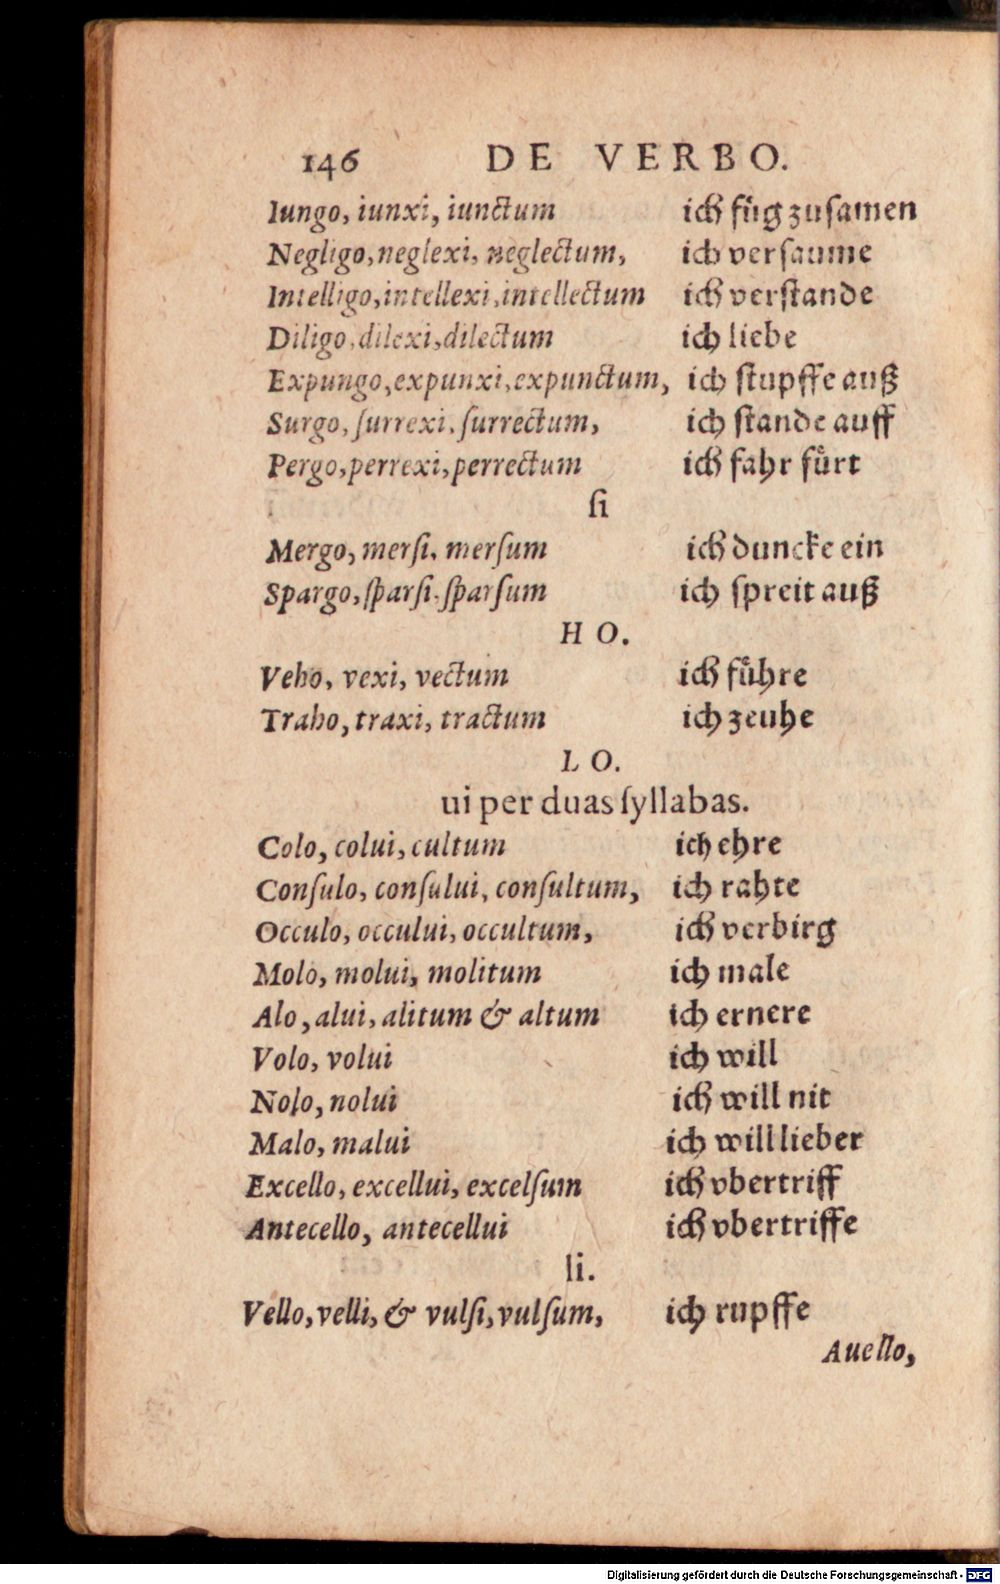 146 DE VERBO.
Iungo, iunxi, iunctum ich füg zusamen
Negligo, neglexi, neglectum, ich versaume
Intelligo, intellexi, intellectum ich verstande
Diligo, dilexi, dilectum ich liebe
Expungo, expunxi, expunctum, ich stupffe auß
Surgo, ſurrexi, ſurrectum, ich stande auff
Pergo, perrexi, perrectum ich fahr fuͤrt
ſi
Mergo, merſi, merſum ich duncke ein
Spargo, ſparſi, ſparſum ich spreit auß
HO.
Veho, vexi, vectum ich fuͤhre
Traho, traxi, tractum ich zeuhe
LO.
ui per duas ſyllabas.
Colo, colui, cultum ich ehre
Conſulo, conſului, conſultum, ich rahte
Occulo, occului, occultum, ich verbirg
Molo, molui, molitum ich male
Alo, alui, alitum & altum ich ernere
Volo, volui ich will
Nolo, nolui ich will nit
Malo, malui ich will lieber
Excello, excellui, excelſum ich vbertriff
Antecello, antecellui ich vbertriffe
li.
Vello, velli, & vulſi, vulſum, ich rupffe
Auello,
Digitalisierung gefördert durch die Deutsche Forschungsgemeinschaft - DFG